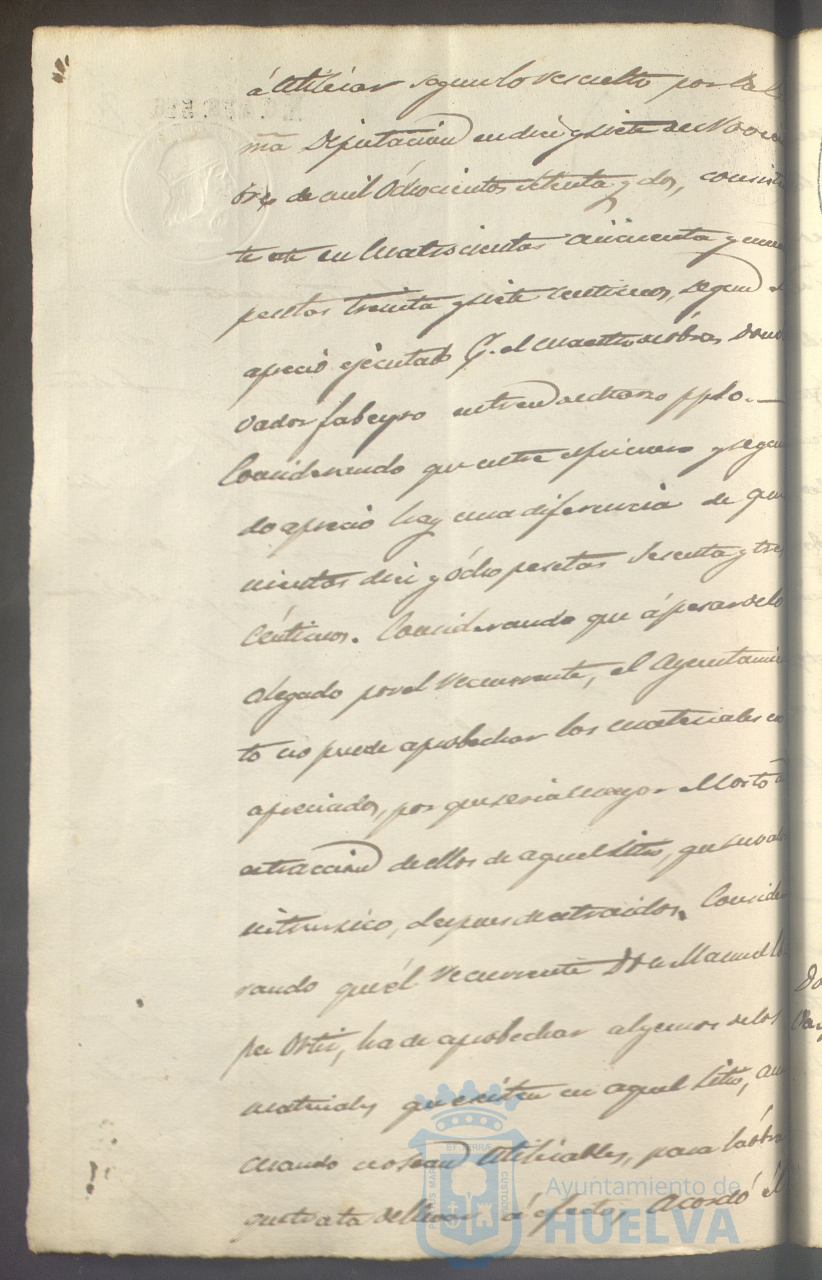 á utilizar segun lo resuelto por la
ma Diputacion en diez y siete de Noviem
bre de mil ochocientos setenta y dos, consist
te este en cuatrocientas cincuenta y una
pesetas treinta y siete centimos, segun
aprecio ejecutado p.r el maestro de obras Don
vador fabeyro
Considerando que entre el primero y segun
do aprecio hay una diferencia de qui
nientas diez y ocho pesetas sesenta y tres
céntimos. Considerando que á pesar de lo
alegado por el recurrente, el Ayuntamien
to no puede aprobechar los materiales
apreciados, por que seria mayor el costo
estraccion de ellos de aquel sitio, que su valor
intrinsico, despues de estraidos. Conside
rando que el recurrente Don Manuel
pez Ortiz, ha de aprobechar algunos de los
materiales que existen en aquel sitio, aun
cuando no sean utilizables, para la obra
que trata de llevar á efecto, Acordó el
PORTUS MARIS ET TERRAE CUSTODIA
Ayuntamiento de
HUELVA